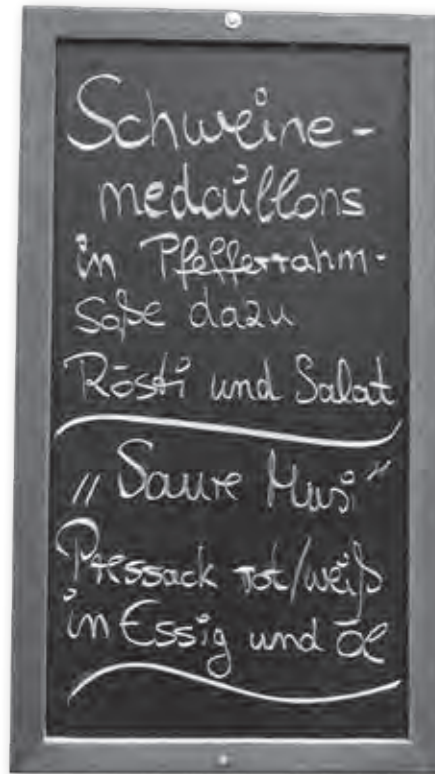 Schweine-
medaillons
in Pfefferrahm-
soße dazu
Rösti und Salat
„Saure Musi"
Pressack rot/weiß
in Essig und Öl